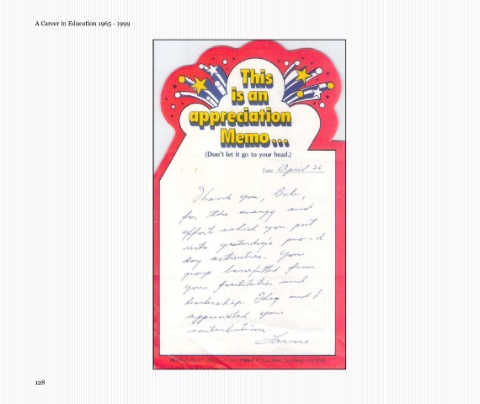 A Career in Education 1965 - 1999
This
is an
appreciation
Memo...
(Don't let it go to your head.)
Date April 26
Thank you, Bob,
for the energy and
effort which you put
into yesterday's pro-d
day activities. Your
group benefitted from
your facilitation and
leadership. They and I
appreciated your
contribution.
128